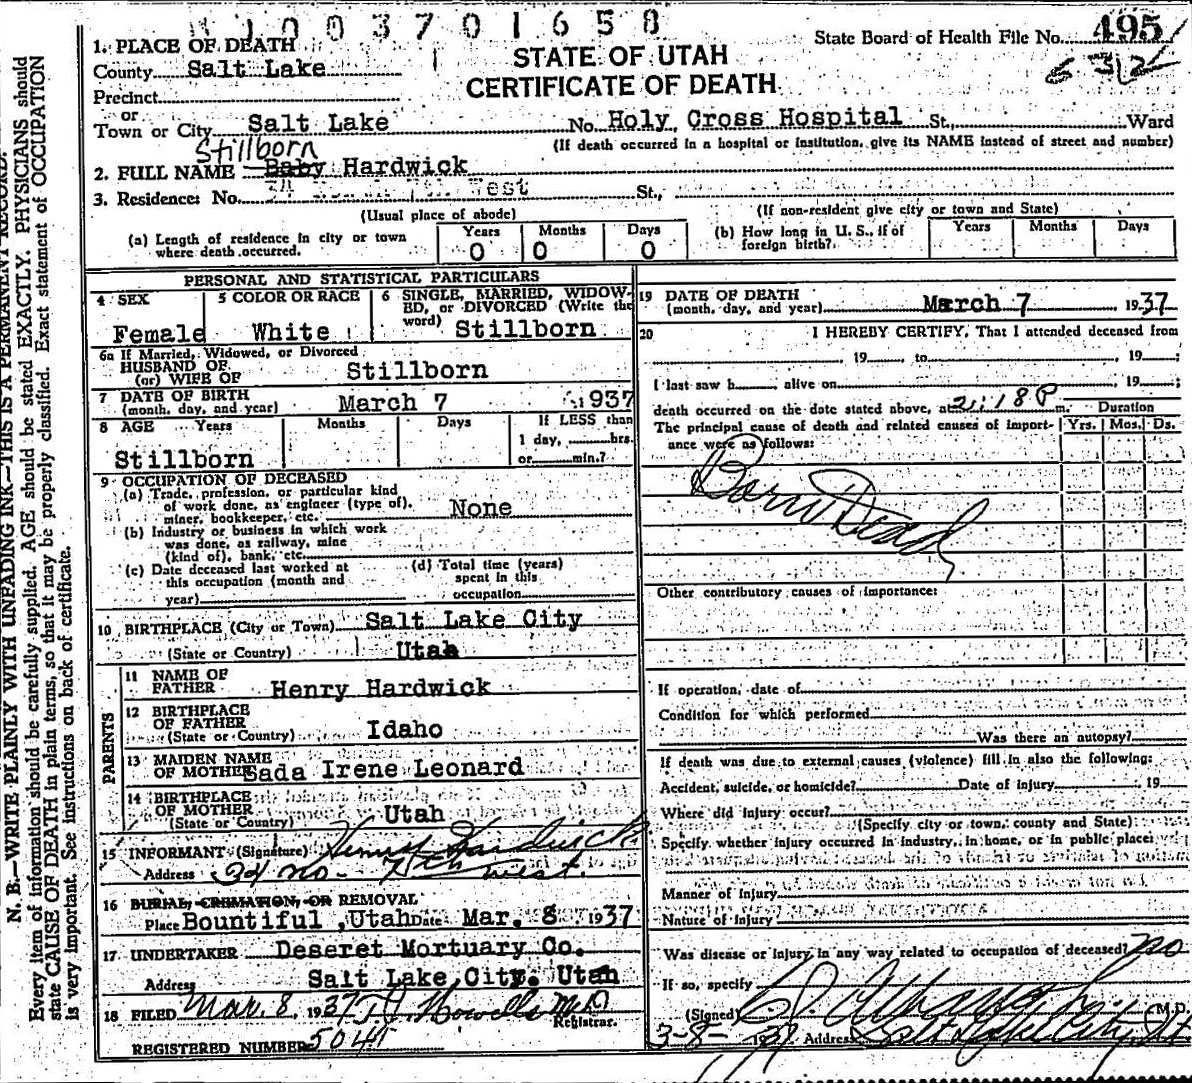 11003701658
State Board of Health File No. 495
632
STATE OF UTAH
CERTIFICATE OF DEATH
1. PLACE OF DEATH
County Salt Lake
Precinct
or
Town or City Salt Lake No. Holy Cross Hospital St., Ward
(If death occurred in a hospital or institution, give its NAME instead of street and number)
Stillborn
2. FULL NAME Baby Hardwick
3. Residence: No. West St.,
(Usual place of abode) (If non-resident give city or town and State)
(a) Length of residence in city or town where death occurred. Years 0 Months 0 Days 0
(b) How long in U. S., if of foreign birth? Years Months Days
PERSONAL AND STATISTICAL PARTICULARS
4 SEX Female
5 COLOR OR RACE White
6 SINGLE, MARRIED, WIDOWED, or DIVORCED (Write the word) Stillborn
6a If Married, Widowed, or Divorced
HUSBAND OF
(or) WIFE OF Stillborn
7 DATE OF BIRTH
(month, day, and year) March 7 1937
8 AGE Years Months Days If LESS than
1 day, hrs.
or min.?
Stillborn
9 OCCUPATION OF DECEASED
(a) Trade, profession, or particular kind
of work done, as engineer (type of),
miner, bookkeeper, etc. None
(b) Industry or business in which work
was done, as railway, mine
(kind of), bank, etc.
(c) Date deceased last worked at
this occupation (month and
year)
(d) Total time (years)
spent in this
occupation
10 BIRTHPLACE (City or Town) Salt Lake City
(State or Country) Utah
PARENTS
11 NAME OF
FATHER Henry Hardwick
12 BIRTHPLACE
OF FATHER
(State or Country) Idaho
13 MAIDEN NAME
OF MOTHER Sada Irene Leonard
14 BIRTHPLACE
OF MOTHER
(State or Country) Utah
15 INFORMANT (Signature) Henry Hardwick
Address 34 no- 7th west.
16 BURIAL, CREMATION, OR REMOVAL
Place Bountiful, Utah Date Mar. 8 1937
17 UNDERTAKER Deseret Mortuary Co.
Address Salt Lake City. Utah
18 FILED Mar. 8, 1937 Howells M.D
Registrar.
REGISTERED NUMBER
19 DATE OF DEATH
(month, day, and year) March 7 1937
20 I HEREBY CERTIFY, That I attended deceased from
, 19 , to , 19 ;
I last saw h , alive on , 19 ;
death occurred on the date stated above, at 2:18 P m. Duration
The principal cause of death and related causes of importance were as follows: Yrs. Mos. Ds.
Born Dead
Other contributory causes of importance:
If operation, date of
Condition for which performed
Was there an autopsy?
If death was due to external causes (violence) fill in also the following:
Accident, suicide, or homicide? Date of injury , 19
Where did injury occur?
(Specify city or town, county and State)
Specify whether injury occurred in industry, in home, or in public place:
Manner of Injury
Nature of Injury
Was disease or injury in any way related to occupation of deceased? no
If so, specify
(Signed) M.D.
3-8- 1937 Address Salt Lake City, Ut.
N. B.—WRITE PLAINLY WITH UNFADING INK—THIS IS A PERMANENT RECORD.
Every item of information should be carefully supplied. AGE should be stated EXACTLY. PHYSICIANS should
state CAUSE OF DEATH in plain terms, so that it may be properly classified. Exact statement of OCCUPATION
is very important. See instructions on back of certificate.